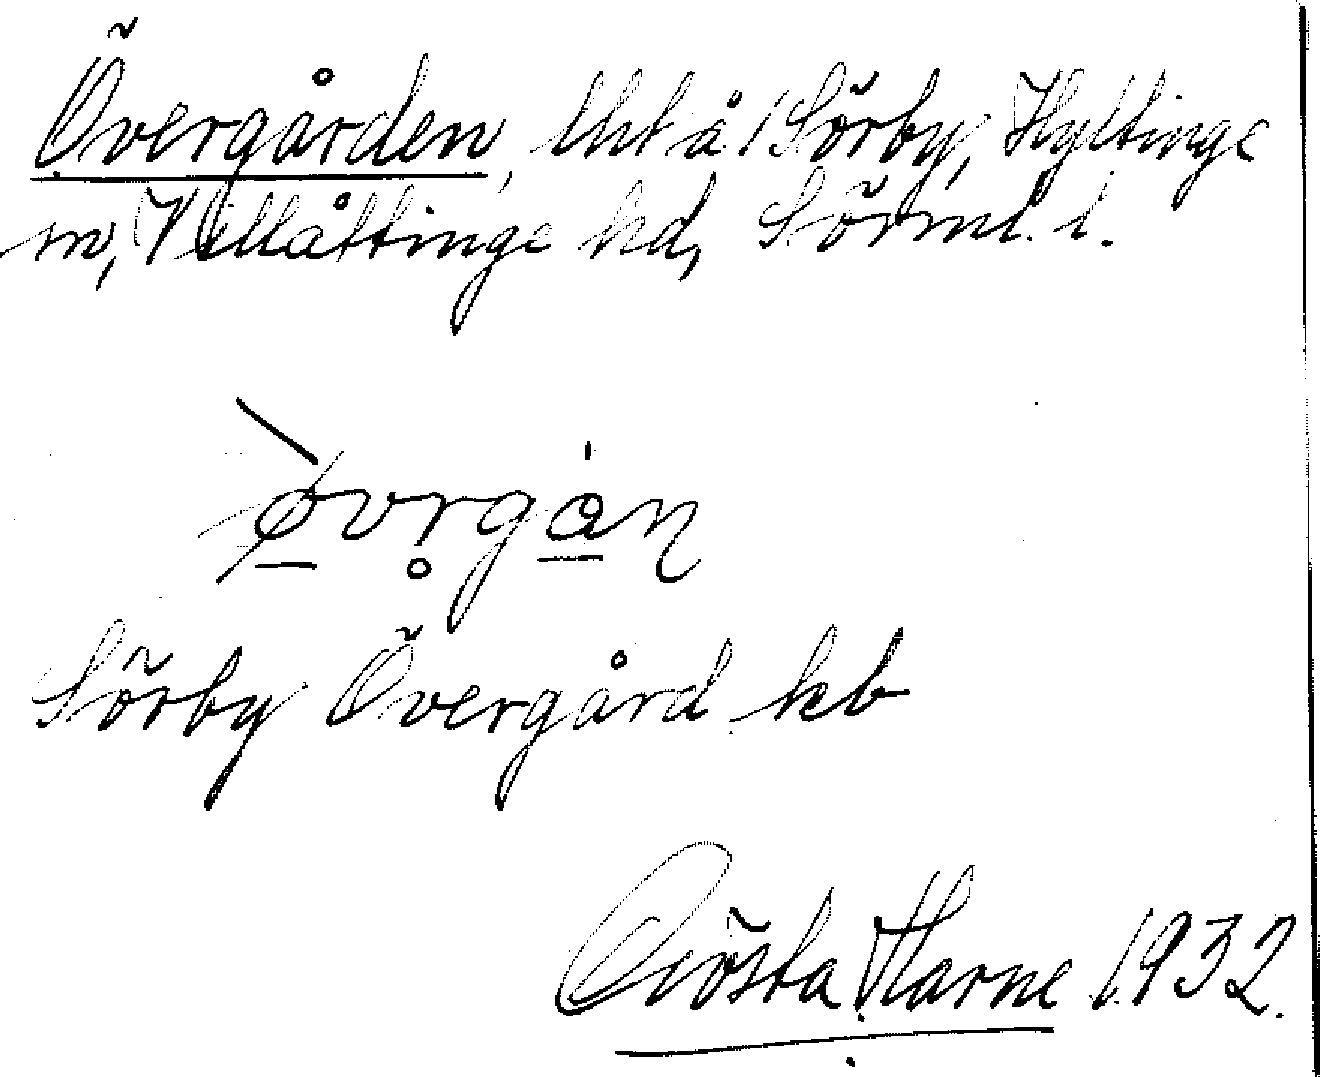 Övergården, lht å Sörby, Hyltinge
sn, Villåttinge hd, Sörml. l.
øvr̥gån
Sörby Övergård kb
Gösta Harne 1932.